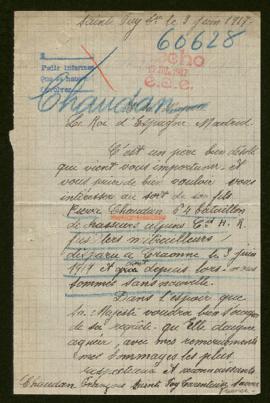 Sainte Foy le 3 juin 1917.
60628
Pedir informes
1917
Chaudan
Le Roi d'Espagne Madrid.
C'est un père bien désolé
qui vient vous importuner, et
vous prier de bien vouloir vous
intéresser au sort de son fils
Pierre Chaudan
bataillon
de chasseurs alpins
mitrailleurs
disparu à Craonne le 3 juin
et depuis lors nous
sommes sans nouvelle.
Dans l'espoir que
sa Majesté voudra bien s'occuper
de sa requête qu'elle daigne
avec mes remerciements
mes hommages les plus
respectueux et reconnaissants
Chaudan François Sainte Foy Tarentaise Savoie
France